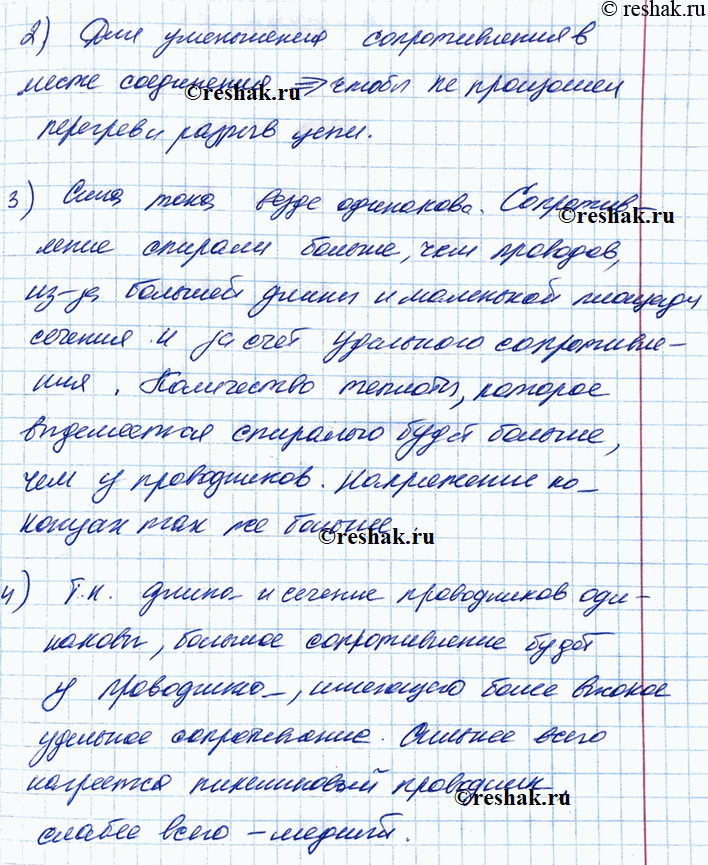 © reshak.ru
2) Для уменьшения сопротивления в
месте соединения ⇒ чтобы не произошел
©reshak.ru
перегрев и разрыв цепи.
3) Сила тока везде одинакова. Сопротив-
©reshak.ru
ление спирали больше, чем проводов,
из-за большей длины и маленькой площади
сечения и за счет удельного сопротивле-
ния. Количество теплоты, которое
выделяется спиралью будет больше,
чем у проводников. Напряжение на
концах так же больше.
©reshak.ru
4) Т.к. длина и сечение проводников оди-
наковы, большое сопротивление будет
у проводника, имеющего более высокое
удельное сопротивление. Сильнее всего
нагреется никелиновый проводник,
©reshak.ru
слабее всего – медный.